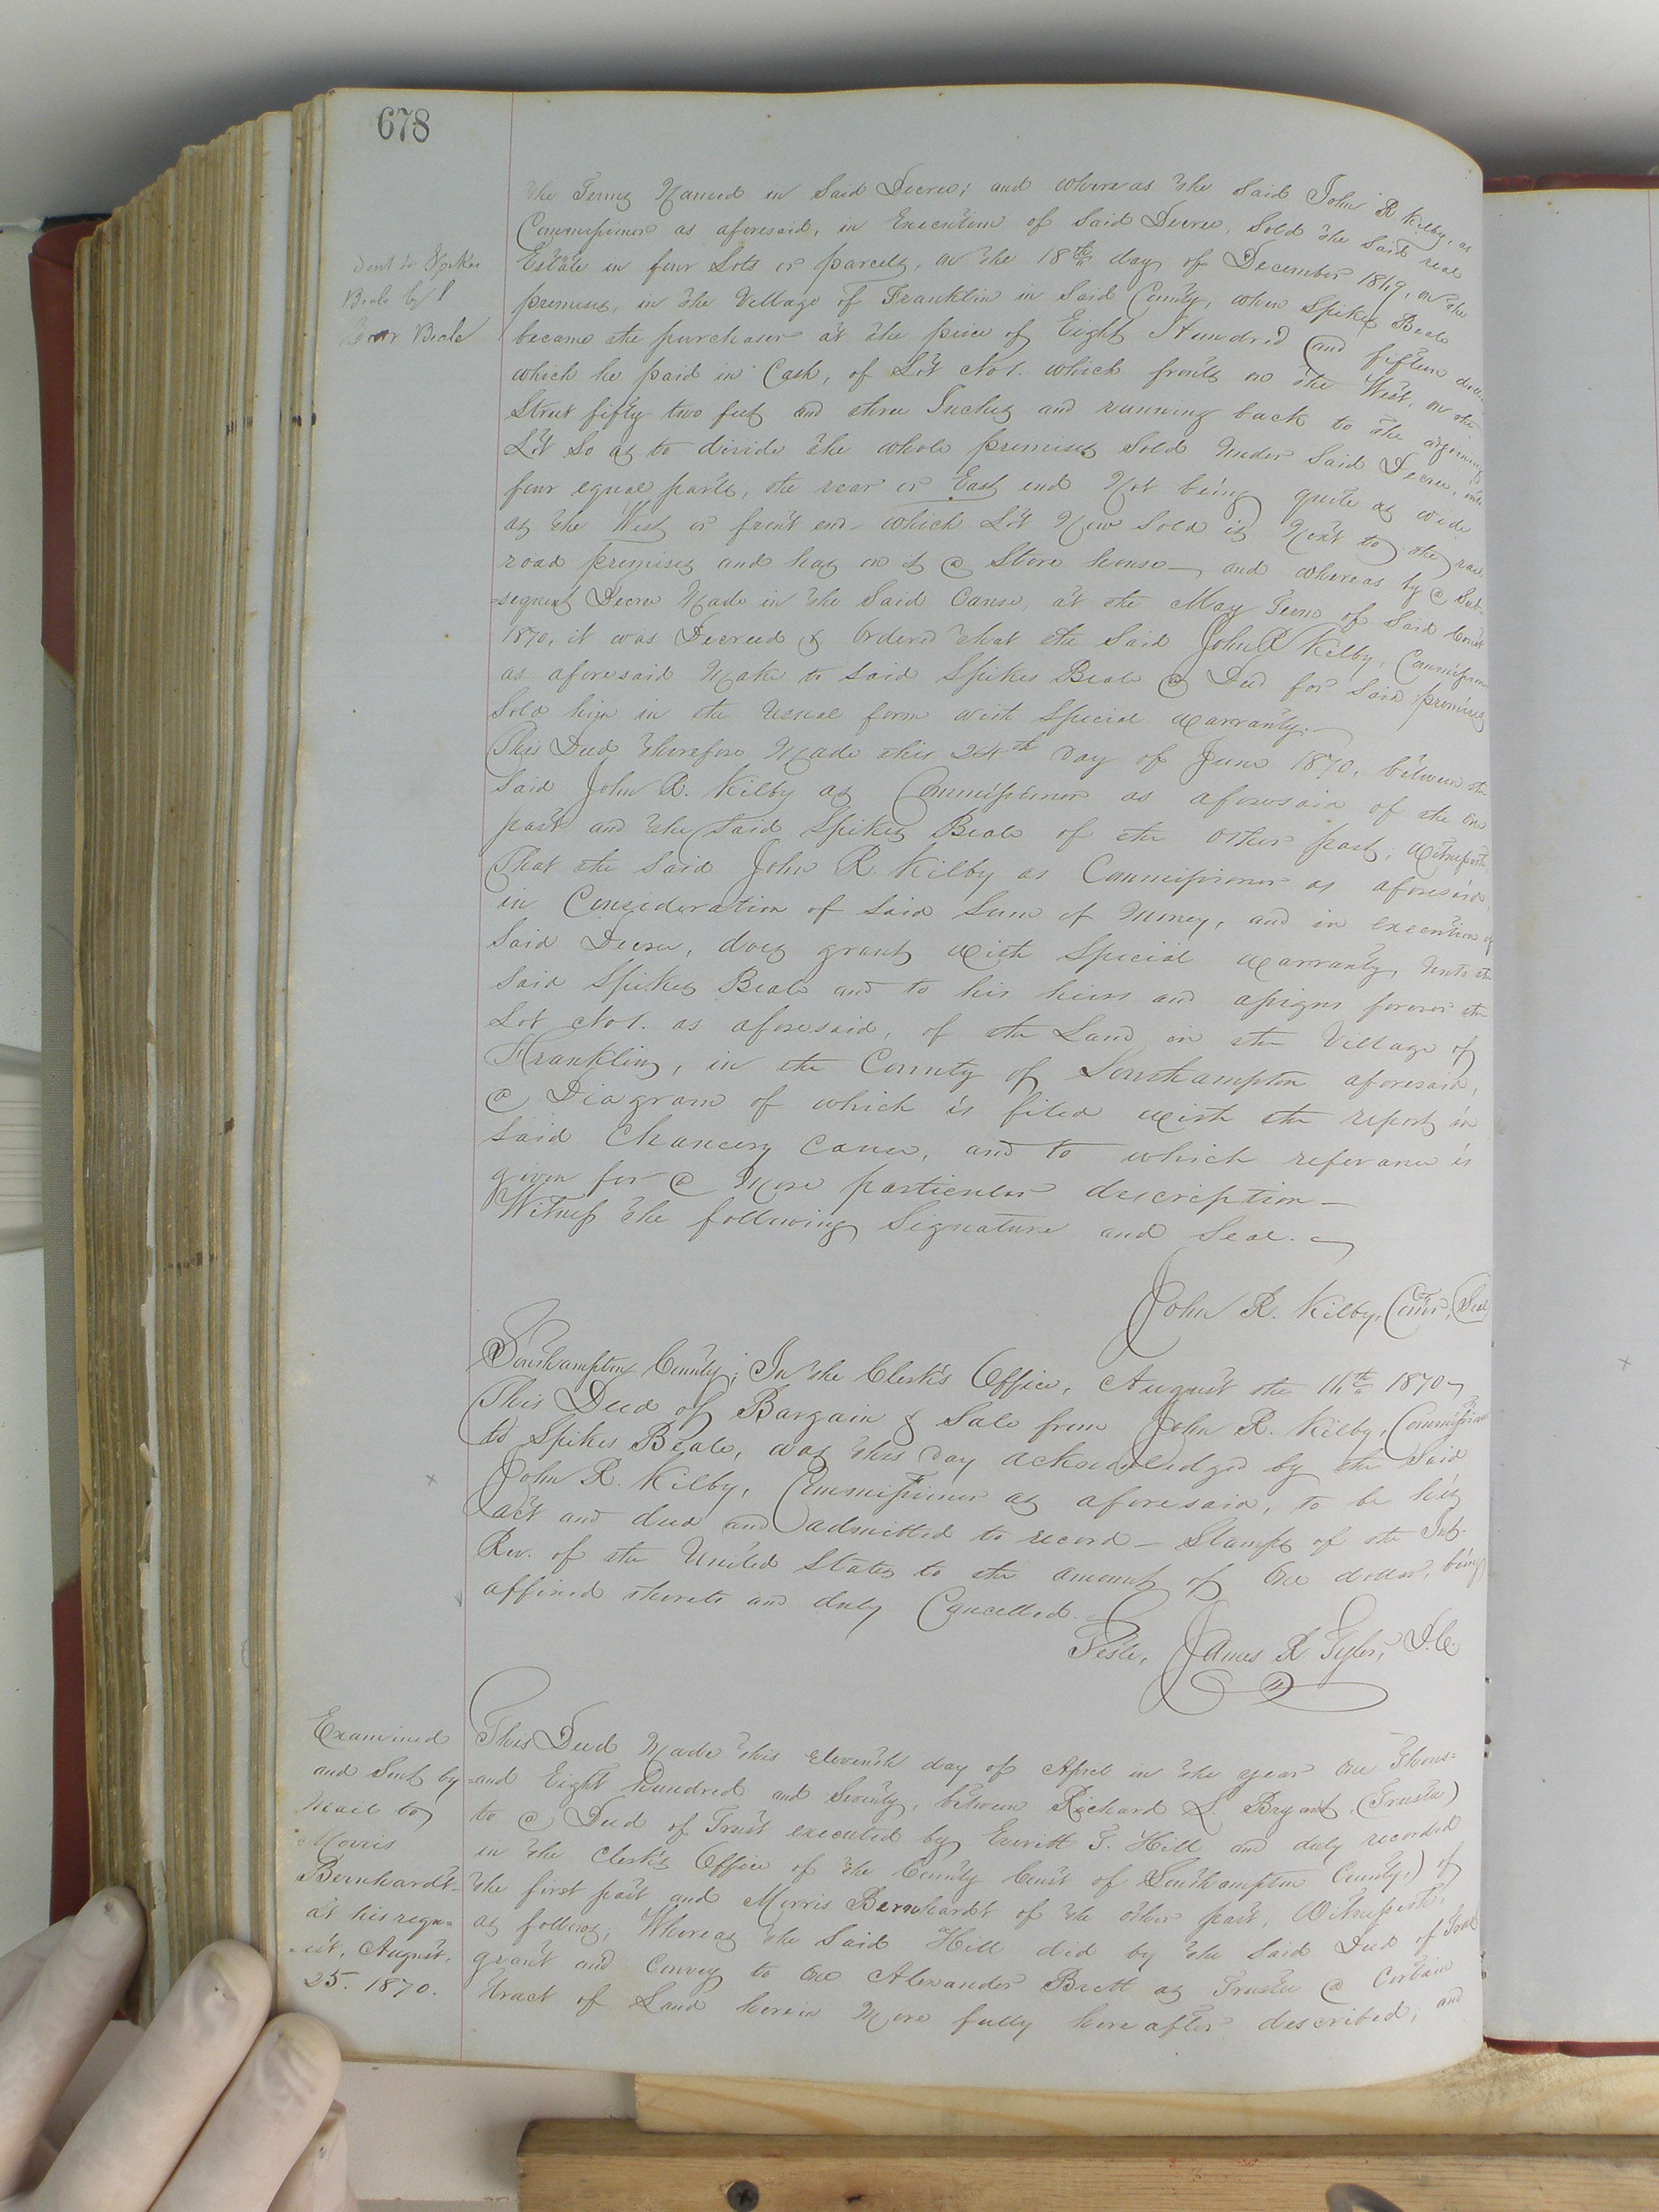 678
the Terms Named in Said Decree; and whereas the Said John R Kilby, as
Commissioner as aforesaid, in Execution of Said Decree, Sold the Said real
Estate in four Lots or parcels, on the 18th day of December 1869, on the
premises, in the Village of Franklin in Said County, when Spikes Beale
became the purchaser at the price of Eight Hundred and fifteen
which he paid in Cash, of Lot No 1. which fronts on the West, on the
Street fifty two feet and three Inches and running back to the
Lot So as to divide the whole premises Sold Under Said Decree, into
four equal parts, the rear or East end Not being quite as wide
as the West or front end - which Lot Now Sold is Next to the rail
road premises and has on it a Store house — and whereas by a Sub=
=sequent Decree Made in the Said Cause, at the May Term of Said Court
1870, it was Decreed & Ordered that the Said John R Kilby, Commissioner
as aforesaid Make to Said Spikes Beale a Deed for Said premises
Sold him in the Usual form with Special Warranty.—
This Deed therefore Made this 24th Day of June 1870. between the
Said John R. Kilby as Commissioner as aforesaid of the One
part and the Said Spikes Beale of the Other part; Witnesseth,
That the Said John R. Kilby as Commissioner as aforesaid,
in Consideration of Said Sum of Money, and in execution of
Said Decree, does grant With Special Warranty, Unto the
Said Spikes Beale and to his heirs and assigns forever the
Lot No 1. as aforesaid, of the Land in the Village of
Franklin, in the County of Southampton aforesaid,
a Diagram of which is filed with the report in
Said Chancery Cause, and to which referance is
given for a More particular description —
Witness the following Signature and Seal.
John R. Kilby, Comr, Seal
Sent to Spikes
Beale by
Beale
Southampton County; In the Clerk's Office, August the 16th 1870
This Deed of Bargain & Sale from John R. Kilby, Commissioner
to Spikes Beale, was this Day acknowledged by the Said
John R. Kilby, Commissioner as aforesaid, to be his
act and deed and admitted to record — Stamps of the Int.
Rev. of the United States to the amount of One dollar, being
affixed thereto and duly Cancelled.
Teste, James R. Tyler, D.C.
Examined
and Sent by
Mail to
Morris
Bernhardt
at his requ=
=est, August,
25. 1870.
This Deed Made this eleventh day of April in the year One Thous=
=and Eight hundred and Seventy, between Richard L. Bryant, (Trustee)
to a Deed of Trust executed by Everett T. Hill and duly recorded
in the Clerk's Office of the County Court of Southampton County,) of
the first part and Morris Bernhardt of the other part, Witnesseth,
as follows, Whereas the Said Hill did by the Said Deed of Trust
grant and Convey to One Alexander Brett as Trustee a Certain
tract of Land herein More fully here after described; and